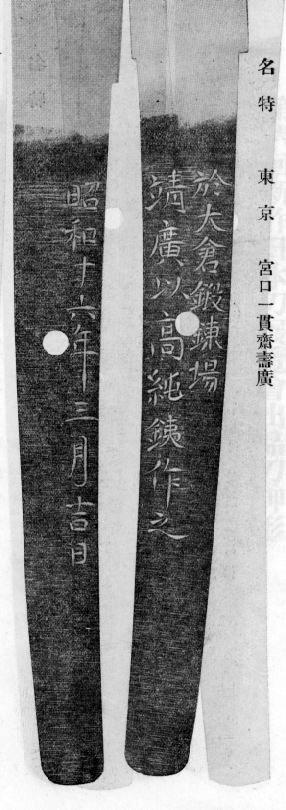 名特 東京 宮口一貫齋壽廣
於大倉鍛錬場
靖廣以高純鉄作之
昭和十六年三月吉日